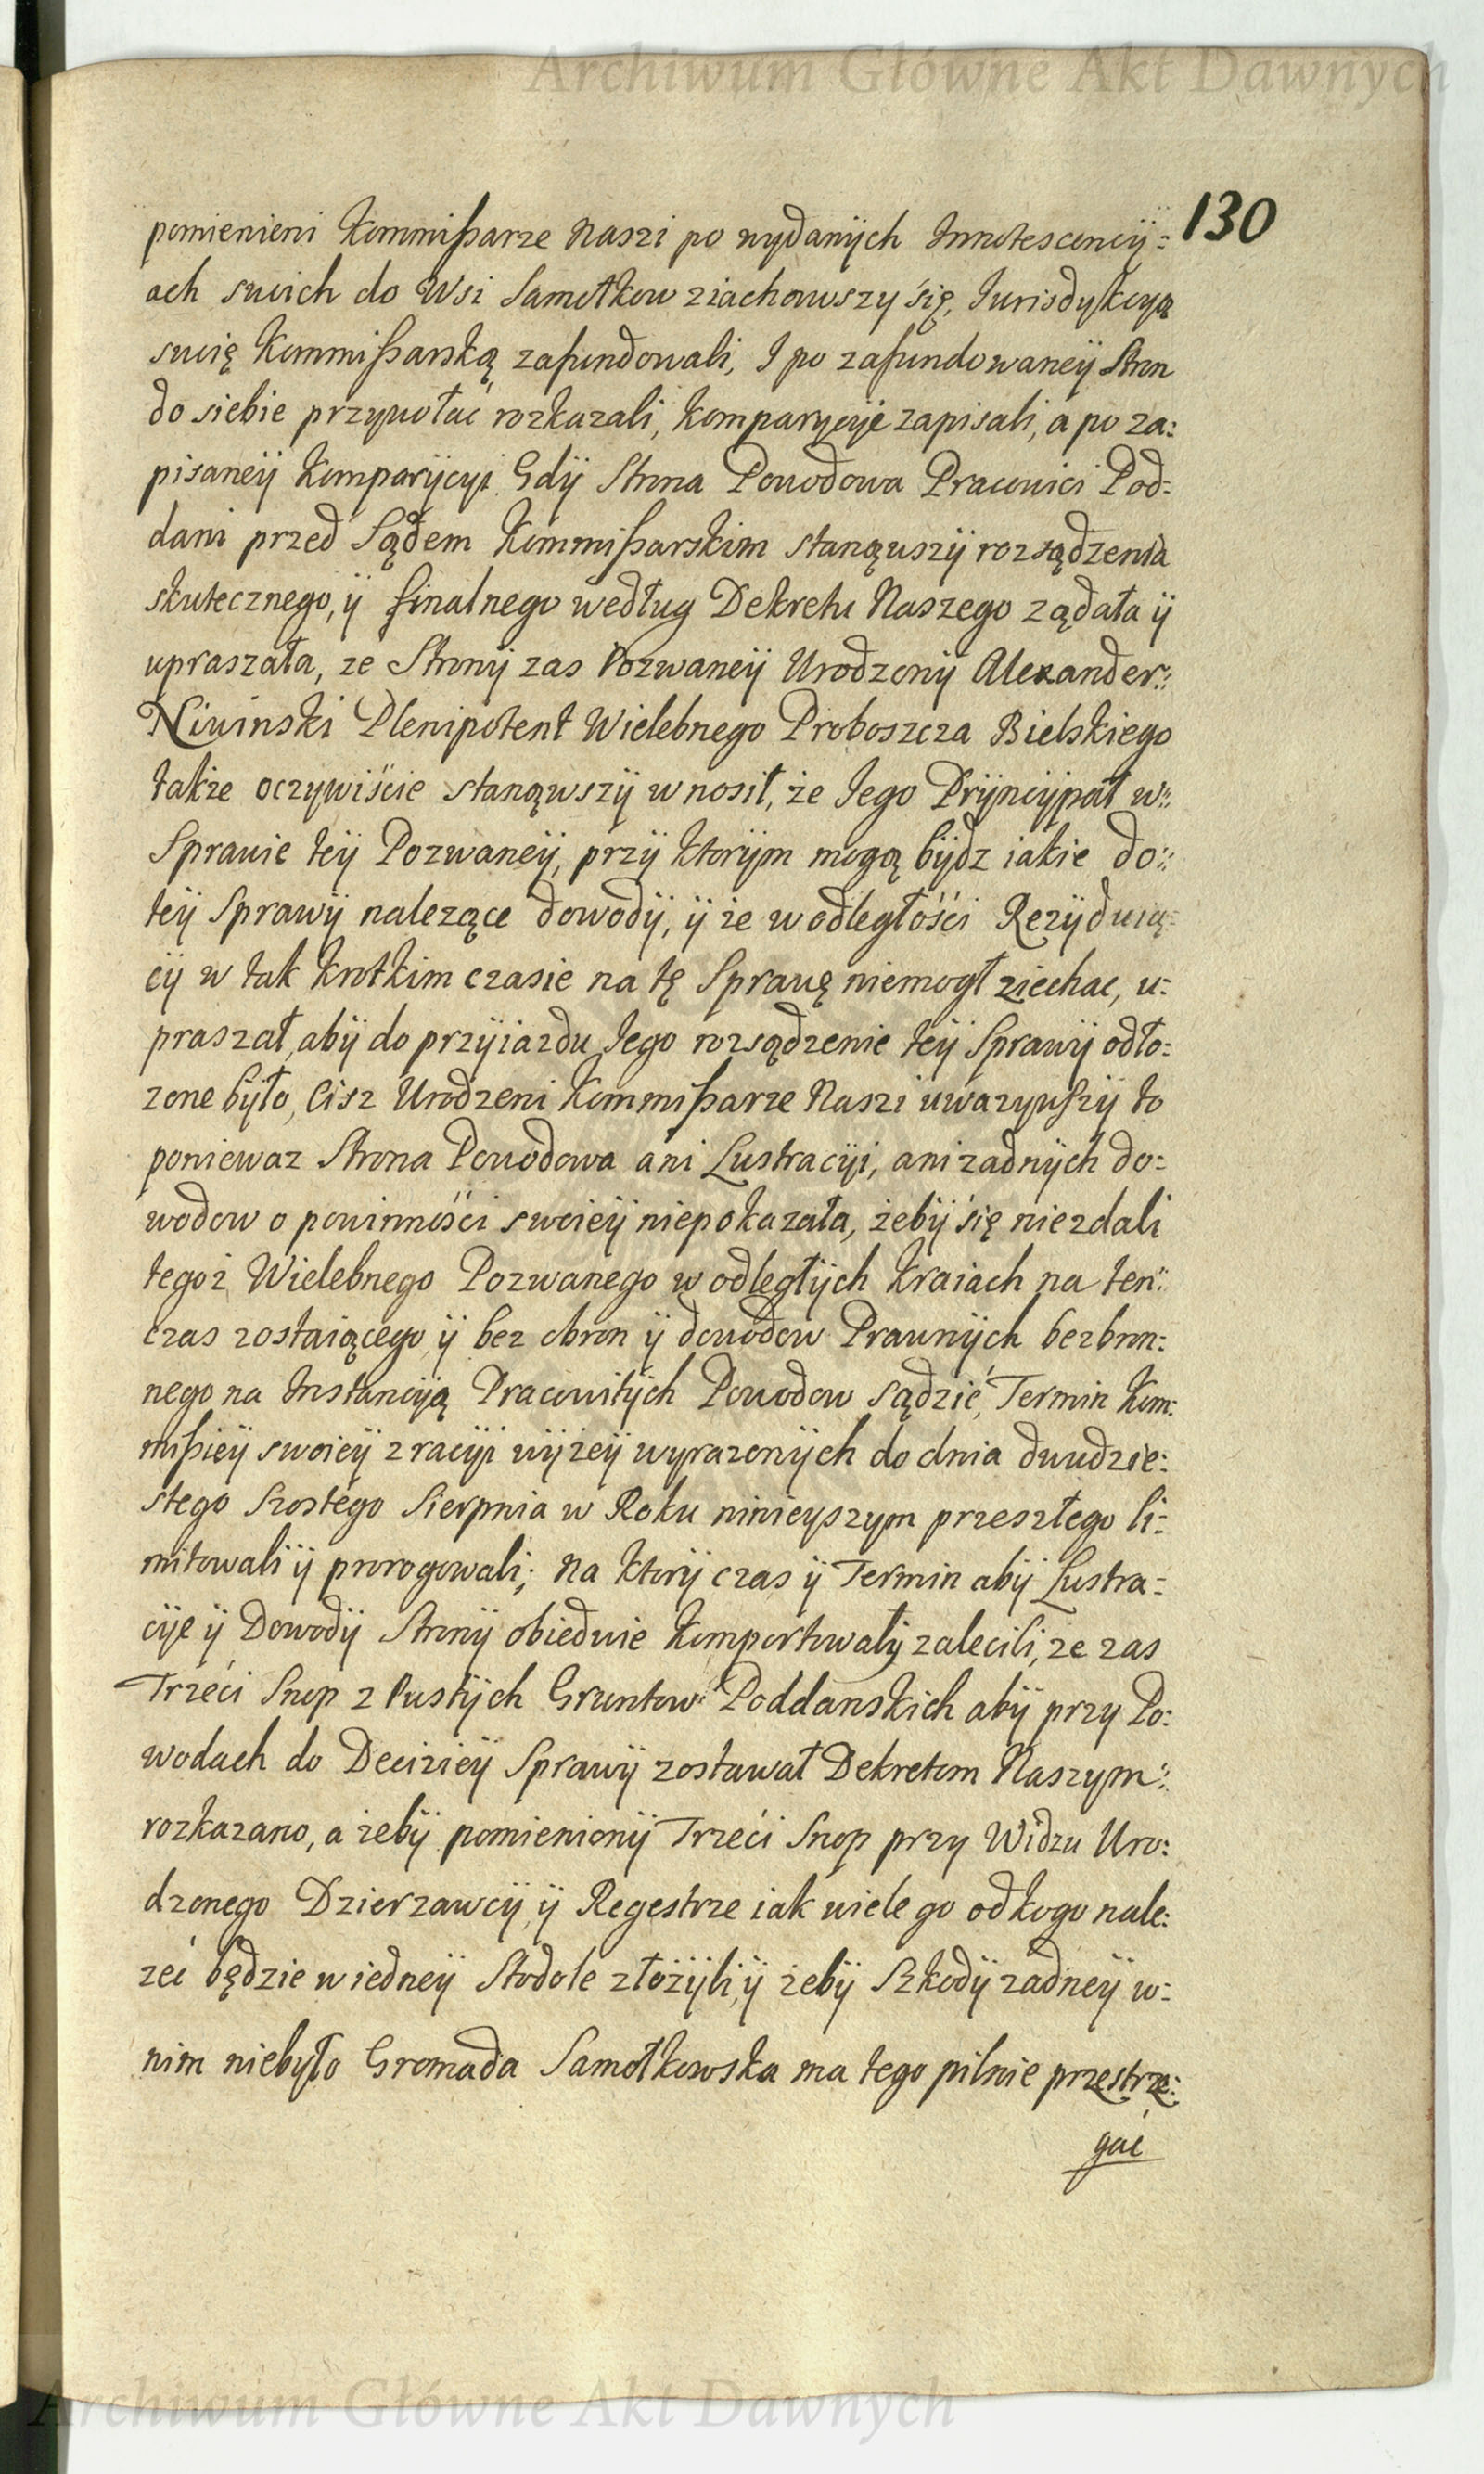 Archiwum Główne Akt Dawnych
130
pomienieni Kommißarze Naszi po wydanÿch Innotescencÿ:
ach swich do Wsi Samotkow ziachawszy się, Jurisdykcyą
swoię Kommißarską zafundowali, I po zafundowaneÿ Stron
do siebie przywołać rozkazali, Komparycÿe zapisali, á po za:
pisaneÿ Komparÿcyi. Gdÿ Strona Powodowa Pracowici Pod:
dani przed Sądem Kommißarskim stanąwszÿ rozsądzenia
skutecznego, ÿ finalnego według Dekretu Naszego ządała ÿ
upraszała, ze Stronÿ zas Pozwaneÿ Urodzonÿ Alexander::
Niwinski Plenipotent Wielebnego Proboszcza Bielskiego
także oczywiście stanąwszÿ wnosił, że Jego Prÿncÿpał w::
Sprawie teÿ Pozwaneÿ, przÿ ktorÿm mogą bÿdz iakie do::
teÿ Sprawÿ nalezące dowodÿ, ÿ że w odległości Rezÿduią:
cÿ w tak krotkim czasie na tę Sprawę niemogł ziechac, u:
praszał, abÿ do przÿiazdu Jego rozsądzenie teÿ Sprawÿ odło:
zone bÿło, Cisz Urodzeni Kommißarze Naszi uwazywszÿ to
poniewaz Strona Powodowa ani Lustracÿi, ani zadnÿch do:
wodow o powinności swoieÿ niepokazała, żebÿ się niezdali
tegoż Wielebnego Pozwanego w odległÿch Kraiach na ten::
czas zostaiącego, ÿ bez obron ÿ dowodow Prawnÿch bezbron:
nego na Instancÿą Pracowitÿch Powodow sądzić, Termin Kom:
mißieÿ swoieÿ z racÿi wÿzeÿ wyrazonÿch do dnia dwudzie:
stego Szostego Sierpnia w Roku ninieyszym przeszłego li:
mitowali ÿ prorogowali; na ktorÿ czas ÿ Termin abÿ Lustra:
cÿe ÿ Dowodÿ Stronÿ obiedwie komportowałÿ zalecili, ze zas
Trzeći Snop z Pustÿch Gruntow Poddanskich abÿ przy Po:
wodach do Decizieÿ Sprawÿ zostawał Dekretem Naszym::
rozkazano, a żebÿ pomienionÿ Trzeći Snop przy Widzu Uro:
dzonego Dzierzawcÿ, ÿ Regestrze iak wiele go od kogo nale:
zeć będzie w iedneÿ Stodole złożÿli, ÿ żebÿ Szkodÿ zadneÿ w:
nim niebyło Gromada Samotkowska ma tego pilnie przestrze:
gać
Archiwum Główne Akt Dawnych